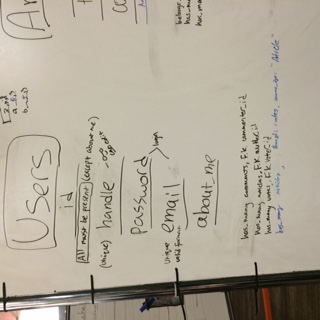 Users
id
All must be present (except about me)
(unique) handle
can edit
password
login
unique
valid format
email
about_me
has_many comments, f.k. commenter_id
has_many articles, f.k. author_id
has_many votes, f.k. voter_id
has_many articles, through: votes, "Article"
Ar